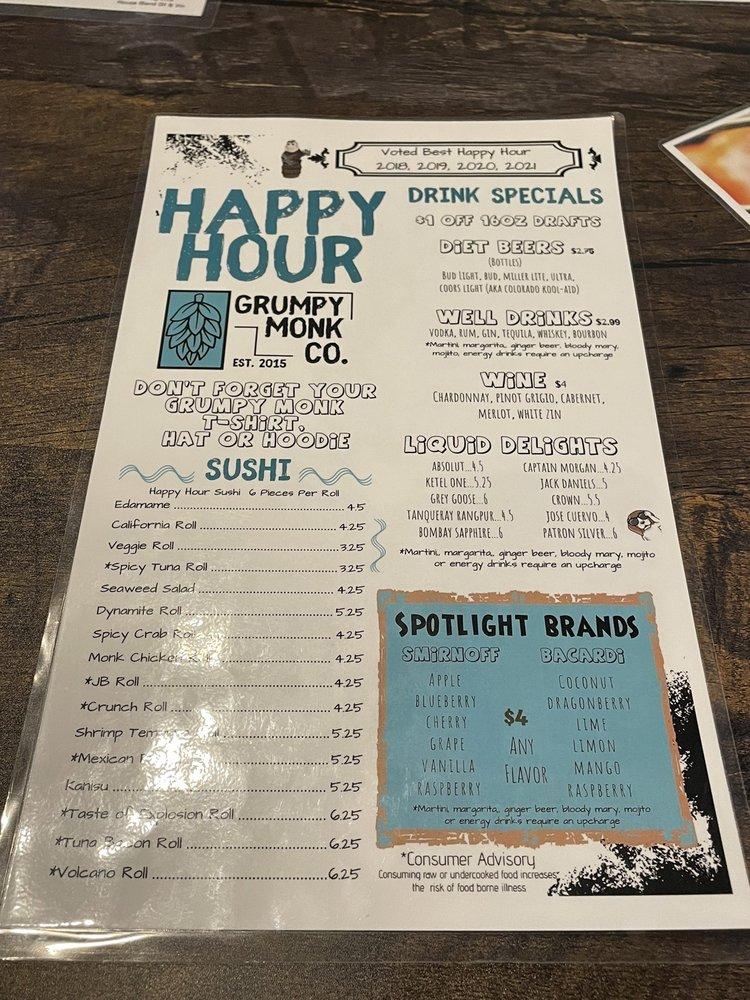 House Blend Of & Vin
Voted Best Happy Hour
2018, 2019, 2020, 2021
HAPPY
HOUR
GRUMPY
MONK
CO.
EST. 2015
DON'T FORGET YOUR
GRUMPY MONK
T-SHIRT,
HAT OR HOODIE
SUSHI
Happy Hour Sushi 6 Pieces Per Roll
Edamame 4.5
California Roll 4.25
Veggie Roll 3.25
*Spicy Tuna Roll 3.25
Seaweed Salad 4.25
Dynamite Roll 5.25
Spicy Crab Roll 4.25
Monk Chicken 4.25
*JB Roll 4.25
*Crunch Roll 4.25
Shrimp Tempura Roll 5.25
*Mexican 5.25
Kanisu 5.25
*Taste of Explosion Roll 6.25
*Tuna Bacon Roll 6.25
*Volcano Roll 6.25
DRINK SPECIALS
$1 OFF 16OZ DRAFTS
DIET BEERS $2.75
(BOTTLES)
BUD LIGHT, BUD, MILLER LITE, ULTRA,
COORS LIGHT (AKA COLORADO KOOL-AID)
WELL DRINKS $2.99
VODKA, RUM, GIN, TEQUILA, WHISKEY, BOURBON
*Martini, margarita, ginger beer, bloody mary,
mojito, energy drinks require an upcharge
WINE $4
CHARDONNAY, PINOT GRIGIO, CABERNET,
MERLOT, WHITE ZIN
LIQUID DELIGHTS
ABSOLUT...4.5 CAPTAIN MORGAN...4.25
KETEL ONE...5.25 JACK DANIELS...5
GREY GOOSE...6 CROWN...5.5
TANQUERAY RANGPUR...4.5 JOSE CUERVO...4
BOMBAY SAPPHIRE...6 PATRON SILVER...6
*Martini, margarita, ginger beer, bloody mary, mojito
or energy drinks require an upcharge
SPOTLIGHT BRANDS
SMIRNOFF BACARDI
APPLE COCONUT
BLUEBERRY DRAGONBERRY
CHERRY $4 LIME
GRAPE ANY LIMON
VANILLA FLAVOR MANGO
RASPBERRY RASPBERRY
*Martini, margarita, ginger beer, bloody mary, mojito
or energy drinks require an upcharge
*Consumer Advisory
Consuming raw or undercooked food increases
the risk of food borne illness